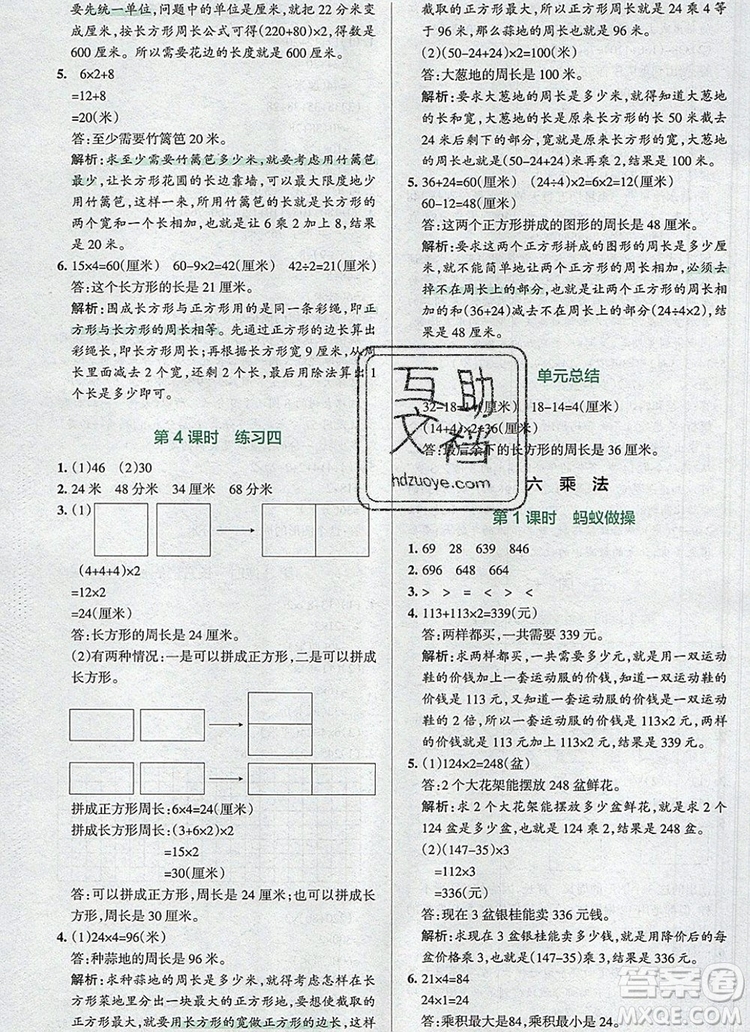 要先统一单位,问题中的单位是厘米,就要把 22 分米变
成厘米,按长方形周长公式可得(220+80)×2,得数是
600 厘米,所以需要花边的长度是 600 厘米。
5. 6×2+8
=12+8
=20(米)
答:至少需要竹篱笆 20 米。
解析:求至少需要竹篱笆多少米,就要考虑用竹篱笆
最少,让长方形花圃的长边靠墙,可以最大限度地少
用竹篱笆。这样,用竹篱笆的长就是长方形的
两个宽和一个长,也就是求 6 乘 2 加上 8,结果
是 20 米。
6. 15×4=60(厘米) 60-9×2=42(厘米) 42÷2=21(厘米)
答:这个长方形的长是 21 厘米。
解析:围成长方形与正方形用的是同一条彩绳,即正
方形与长方形的周长相等。先通过正方形边长算出
彩绳长,即长方形周长;再用长方形宽 9 厘米,从周长
里面减去 2 个宽,还剩 2 个长,最后用除法算出 1
个长是多少即可。
第 4 课时 练习四
1. (1)46 (2)30
2. 24 米 48 分米 34 厘米 68 分米
3. (1)
(4+4+4)×2
=12×2
=24(厘米)
答:长方形的周长是 24 厘米。
(2)有两种情况:一是可以拼成正方形,二是可以拼成
长方形。
拼成正方形周长:6×4=24(厘米)
拼成长方形周长:(3+6×2)×2
=15×2
=30(厘米)
答:可以拼成正方形,周长是 24 厘米;也可以拼成长方
形,周长是 30 厘米。
4. (1)24×4=96(米)
答:种蒜地的周长是 96 米。
解析:求种蒜地的周长是多少米,也就是求在
长方形菜地里分出一块最大的正方形的周长,这个正
方形要最大,就用长方形的宽做正方形的边长,也就是
截取的最大正方形的边长是 24 米,求周长用 24 乘 4 行
了,结果是 96 米,那么蒜地的周长也就是 96 米。
(2)(50-24+24)×2=100(米)
答:大葱地的周长是 100 米。
解析:要求大葱地的周长是多少米,就得知道大葱地
的长和宽,大葱地的长就是原来长方形的长 50 米截
去 24 米后剩下的部分,宽就是原来长方形的宽,也就
是用(50-24+24)米再乘 2,结果是 100 米。
5. 36+24=60(厘米) (24÷4)×2=6×2=12(厘米)
60-12=48(厘米)
答:这两个正方形拼成的图形的周长是 48 厘米。
解析:要求这两个正方形拼成的图形的周长是多少厘
米,不能简单地让两个正方形的周长相加,必须去
掉不在周长上的部分,也就是小正方形的 2 个边长,
和为(36+24)减去不在周长上的部分(24÷4×2),结果
是 48 厘米。
单元总结
32-18=14(厘米) 18-14=4(厘米)
(14+4)×2=36(厘米)
答:最后余下的长方形的周长是 36 厘米。
六 乘 法
第 1 课时 蚂蚁做操
1. 69 28 639 846
2. 696 648 664
3. > > = < > <
4. 113+113×2=339(元)
答:两样都买,一共需要 339 元。
解析:求两样都买,一共需要多少元,就是用一双运动
鞋的价钱加上一套运动服的价钱,知道一双运动
鞋的价钱是 113 元,又知道一套运动服的价钱是运动
鞋的 2 倍,所以一套运动服的价钱是 113×2 元,两样
的价钱就是(113+113×2)元,结果是 339 元。
5. (1)124×2=248(盆)
答:2 个大花架能摆放 248 盆鲜花。
解析:求 2 个大花架能摆放多少盆鲜花,就是求 2 个
124 盆是多少,也就是用 124 乘 2,结果是 248 盆。
(2)(147-35)×3
=112×3
=336(元)
答:现在 3 盆银桂能卖 336 元钱。
解析:求现在 3 盆银桂能卖多少元,就是用降价后的每
盆价格乘 3,也就是(147-35)乘 3,结果是 336 元。
6. 21×4=84
24×1=24
答:乘积最大是 84,乘积最小是 24。
互助
文档
hdzuoye.com
答案圈
MXQE.COM